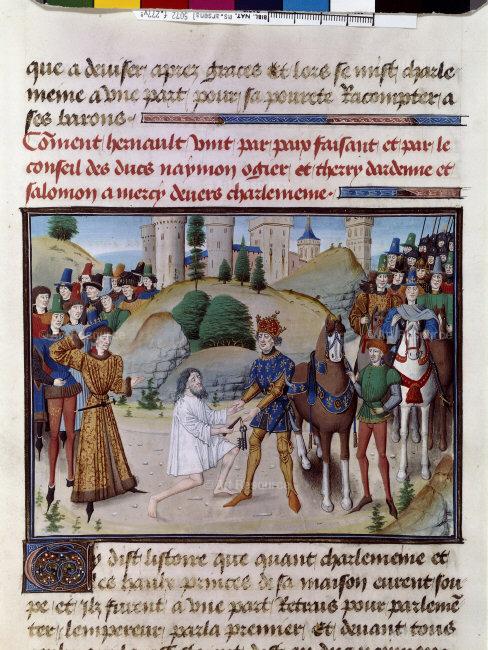 BIBL. NAT. ms. arsenal 5072 f. 277vº
que a deviser aprez graces Et lors se mist charle
meme a vne part pour sa pourete Racompter a
ses barons
Co͞ment hernault vint par paix faisant et par le
conseil des ducs naymon ogier et therry dardenne et
salomon a mercy devers charlememe
Art Resource
Cy dist listoire que quant charlememe et
ces haulx princes de sa maison eurent sou
pe et Ilz furent a vne part Retrais pour parleme͞
ter lempereur parla premier Et deuant tous